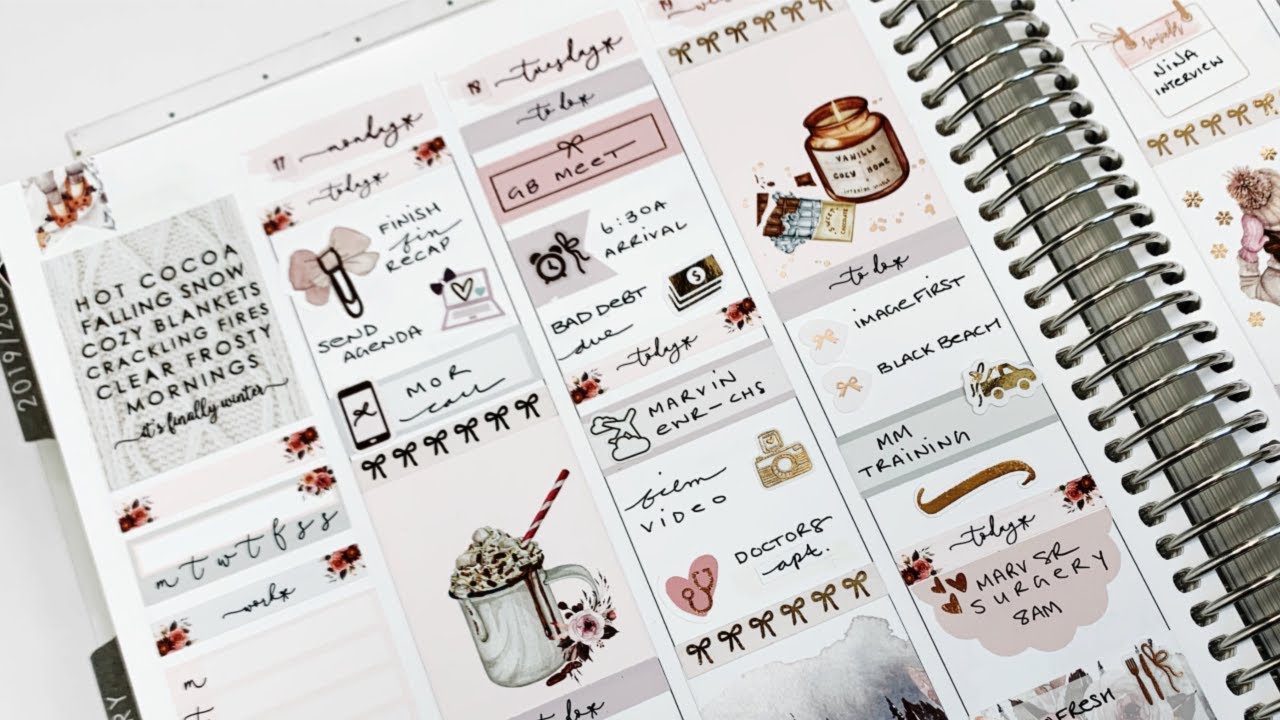 2019/20
HOT COCOA
FALLING SNOW
COZY BLANKETS
CRACKLING FIRES
CLEAR FROSTY
MORNINGS
it's finally winter
m t w t f s s
work*
m
t
17 monday*
today*
FINISH
fin
RECAP
SEND
AGENDA
MOR
call
to do*
18 tuesday*
to do*
GB MEET
6:30A
ARRIVAL
BAD DEBT
due
today*
MARVIN
EWR-CHS
film
VIDEO
DOCTORS
apt.
19
VANILLA
COZY HOME
Sweet
to do*
IMAGEFIRST
BLACK BEACH
MM
TRAINING
today*
MARV SR
SURGERY
8AM
FRESH
NINA
INTERVIEW